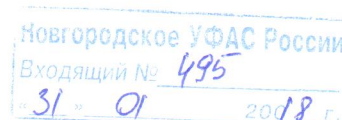 Новгородское УФАС России
Входящий № 495
"31" 01 2018 г.